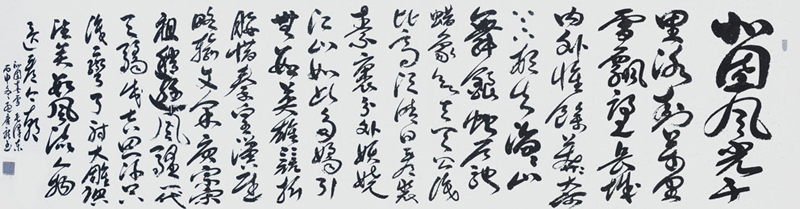 北国风光千
里冰封万里
雪飘望长城
内外惟餘莽
顿失滔滔山
舞银蛇原驰
蜡象欲与天公试
比高须晴日看
装
素裹分外妖娆
江山如此多娇引
无数英雄竞折
腰惜秦皇汉武
略输文采唐宗宋
祖稍逊风骚一代
天骄成吉思汗只
识弯弓射大雕俱
往矣数风流人物
还看今朝
沁园春雪 毛泽东
丙申冬